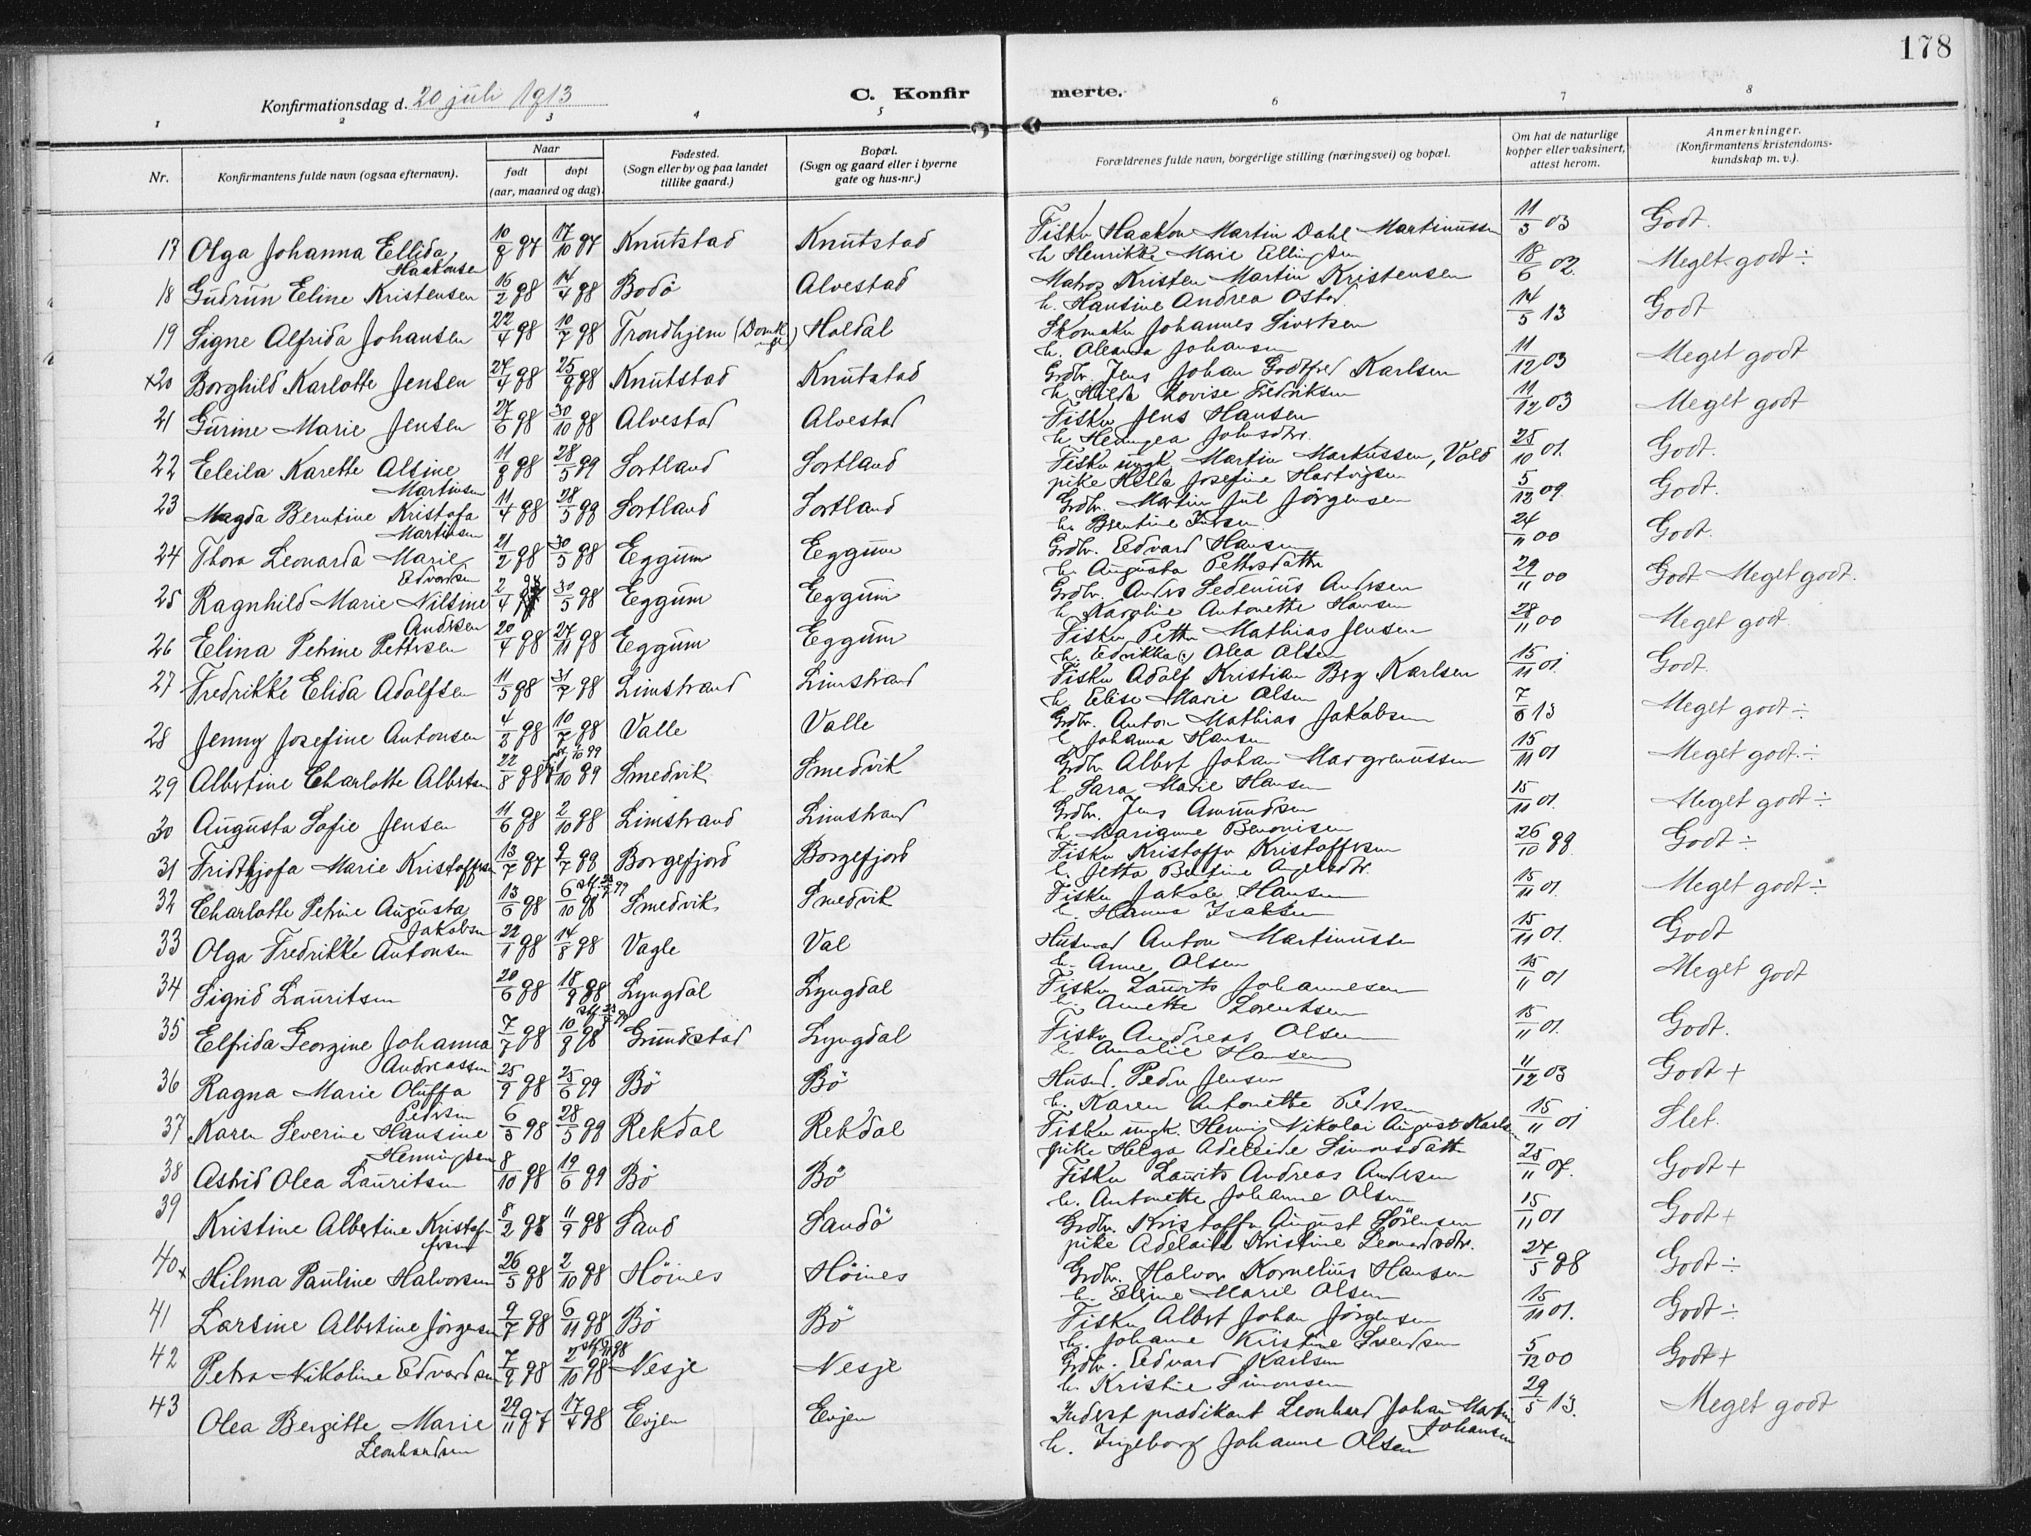 178
Konfirmationsdag d. 20 juli 1913
C. Konfirmerte.
1 2 3 4 5 6 7 8
Nr.
Konfirmantens fulde navn (ogsaa efternavn).
Naar
født
døpt
(aar, maaned og dag).
Fødested.
(Sogn eller by og paa landet
tillike gaard.)
Bopæl.
(Sogn og gaard eller i byerne
gate og hus-nr.)
Forældrenes fulde navn, borgerlige stilling (næringsvei) og bopæl.
Om hat de naturlige
kopper eller vaksinert,
attest herom.
Anmerkninger.
(Konfirmantens kristendoms-
kundskap m. v.).
17 Olga Johanna Ellida Haakonsen 10/8 97 17/10 97 Knutstad Knutstad Fisker Haakon Martin Dahl Martinussen 11/3 03 Godt.
h Henrikke Marie Ellingsen
18 Gudrun Eline Kristensen 16/2 98 14/4 98 Bodö Alvestad Matros Kristen Martin Kristensen 18/6 02. Meget godt ÷
h. Hansine Andrea Ostad.
19 Signe Alfrida Johansen 22/4 98 10/7 98 Trondhjem Holdal Skomaker Johannes Sivertsen 14/5 13 Godt
h. Oleanna Johansen
x20 Borghild Karlotte Jensen 24/4 98 25/9 98 Knutstad Knutstad Grdbr. Jens Johan Godtfred Karlsen 11/12 03 Meget godt
h Hilda Lovise Fredriksen
21 Gurine Marie Jensen 27/6 98 30/10 98 Alvestad Alvestad Fisker Jens Hansen 11/12 03 Meget godt
h Johnsdtr.
22 Eleila Karette Alsine Martinsen 11/9 98 28/5 99 Sortland Sortland Fisker ungk. Martin Markussen, Vold 25/10 01. Godt.
pike Josefine Hartvigsen
23 Magda Berntine Kristofa Martinsen 11/4 98 28/5 99 Sortland Sortland Grdbr. Martin Jul Jörgensen 5/12 09. Godt.
h. Berntine Iversen.
24 Thora Leonarda Marie Edvardsen 21/2 98 30/5 98 Eggum Eggum Grdbr. Edvard Hansen 24/11 00 Godt.
h. Augusta Pettersdatter
25 Ragnhild Marie Nilsine Andersen 2/4 98 30/5 98 Eggum Eggum Grdbr. Anders Sedenius Andersen 29/11 00 Godt Meget godt.
h. Karoline Antonette Hansen
26 Elina Petrine Pettersen 20/4 98 27/11 98 Eggum Eggum Fisker Petter Mathias Jensen 28/11 00 Meget godt.
h. Edvikka Olea Olsen
27 Fredrikke Elida Adolfsen 11/5 98 31/7 98 Limstrand Limstrand Fisker Adolf Kristian Berg Karlsen 15/11 01 Godt.
h. Elise Marie Olsen
28 Jenny Josefine Antonsen 4/3 98 10/7 98 Valle Valle Grdbr. Anton Mathias Jakobsen 7/6 13 Meget godt ÷
h Johanna Hansen
29 Albertine Charlotte Albertsen 22/8 98 1/10 99 Smedvik Smedvik Grdbr Albert Johan Margrenussen 15/11 01 Meget godt ÷
h. Sara Marie Hansen
30 Augusta Sofie Jensen 11/6 98 2/10 98 Limstrand Limstrand Grdbr. Jens Amundsen 15/11 01. Meget godt ÷
h. Marianne Benonisen
31 Fridthjofa Marie Kristoffersen 13/7 97 9/7 99 Borgefjord Borgefjord Fisker Kristoffer Kristoffersen 26/10 99. Godt ÷
h. Jetta Bertine Angelsdtr.
32 Charlotte Petrine Augusta Jakobsen 13/6 98 6/10 98 Smedvik Smedvik Fisker Jakob Hansen 15/11 01. Meget godt ÷
h. Hanna Isaksen
33 Olga Fredrikke Antonsen 22/1 98 14/8 98 Vagle Val Husmand Anton Martinussen 15/11 01. Godt
h. Anne Olsen
34 Sigrid Lauritsen 20/6 98 18/9 98 Lyngdal Lyngdal Fisker Laurits Johannesen 15/11 01 Meget godt
h. Anette Lorentsen
35 Elfrida Georgine Johanna Andreassen 7/7 98 10/9 98 Grundstad Lyngdal Fisker Andreas Olsen 15/11 01. Godt.
h. Amalie Hansen
36 Ragna Marie Oluffa Pedersen 25/9 98 25/6 99 Bö Bö Husmd. Peder Jensen 11/12 03 Godt +
h. Karen Antonette Pedersen
37 Karen Severine Hansine Henningsen 6/3 98 28/5 99 Rekdal Rekdal Fisker ungk. Hennig Nikolai August Karls 15/11 01 Slet.
pike Helga Adeleide Simonsdatter
38 Astrid Olea Lauritsen 8/10 98 19/6 99 Bö Bö Fisker Laurits Andreas Andersen 25/11 07. Godt +
h. Antonette Johanne Olsen
39 Kristine Albertine Kristoffersen 8/2 98 11/9 98 Sand Sandö Grdbr. Kristoffer August Sörensen 15/11 01 Godt +
pike Adelaide Kristine Leonardsdtr.
40x Hilma Pauline Halvorsen 26/5 98 2/10 98 Höines Höines Grdbr. Halvor Kornelius Hansen 27/5 98 Godt ÷
h. Eline Marie Olsen
41 Larsine Albertine Jörgensen 9/7 98 6/11 98 Bö Bö Fisker Albert Johan Jörgensen 15/11 01. Godt ÷
h. Johanne Kristine Svendsen
42 Petra Nikoline Edvardsen 7/9 98 2/10 98 Nesje Nesje Grdbr. Edvard Karlsen 5/12 00 Godt +
h. Kristine Simonsen
43 Olea Bergitte Marie Leonhardsen 29/11 97 17/4 98 Evjen Evjen Inderst prædikant Leonhard Johan Martin Johansen 29/5 13. Meget godt
h. Ingeborg Johanne Olsen